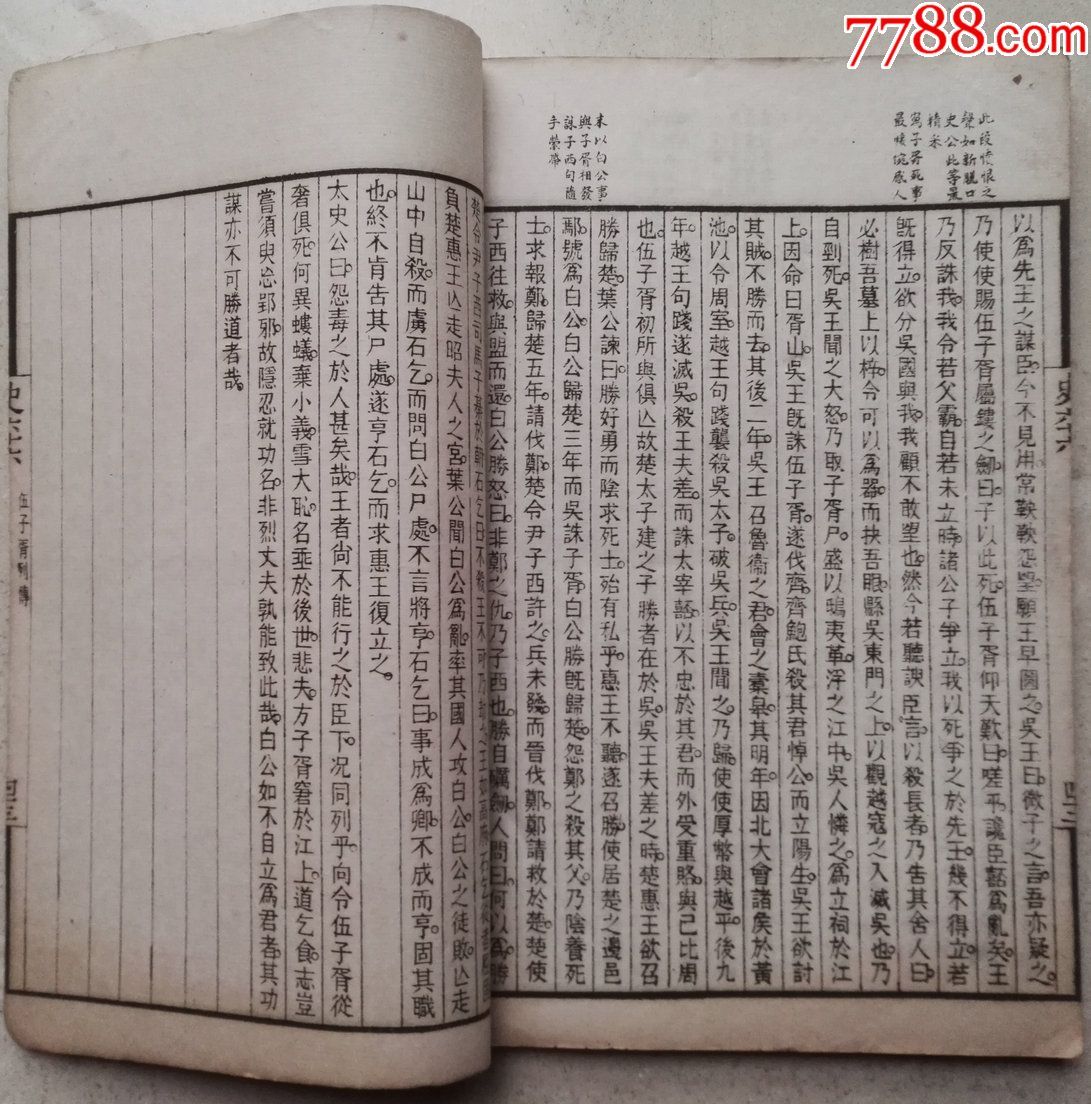 7788.com
此段憤恨之
聲如新脫口
史公此等最
精采
寫子胥死事
最悽惋感人
末以白公事
與子胥相發
謀子西句隨
手縈帶
以爲先王之謀臣。今不見用。常鞅鞅怨望。願王早圖之。吳王曰。微子之言。吾亦疑之。
乃使使賜伍子胥屬鏤之劒。曰。子以此死。伍子胥仰天歎曰。嗟乎。讒臣嚭爲亂矣。王
乃反誅我。我令若父霸。自若未立時。諸公子爭立。我以死爭之於先王。幾不得立。若
旣得立。欲分吳國與我。我顧不敢望也。然今若聽諛臣言以殺長者。乃告其舍人曰。
必樹吾墓上以梓。令可以爲器。而抉吾眼縣吳東門之上。以觀越寇之入滅吳也。乃
自剄死。吳王聞之大怒。乃取子胥尸。盛以鴟夷革。浮之江中。吳人憐之。爲立祠於江
上。因命曰胥山。吳王旣誅伍子胥。遂伐齊。齊鮑氏殺其君悼公。而立陽生。吳王欲討
其賊。不勝而去。其後二年。吳王召魯衞之君。會之橐皋。其明年。因北大會諸侯於黃
池。以令周室。越王句踐襲殺吳太子。破吳兵。吳王聞之。乃歸。使使厚幣與越平。後九
年。越王句踐遂滅吳。殺王夫差。而誅太宰嚭。以不忠於其君。而外受重賂。與己比周
也。伍子胥初所與俱亡。故楚太子建之子勝者。在於吳。吳王夫差之時。楚惠王欲召
勝歸楚。葉公諫曰。勝好勇而陰求死士。殆有私乎。惠王不聽。遂召勝。使居楚之邊邑
鄢。號爲白公。白公歸楚三年。而吳誅子胥。白公勝旣歸楚。怨鄭之殺其父。乃陰養死
士。求報鄭。歸楚五年。請伐鄭。楚令尹子西許之。兵未發而晉伐鄭。鄭請救於楚。楚使
子西往救。與盟而還。白公勝怒曰。非鄭之仇。乃子西也。勝自礪劒。人問曰。何以爲。勝
楚令尹子西司馬子綦於朝。石乞曰。不殺王不可。乃劫之王如高府。石乞
負楚惠王亡走昭夫人之宮。葉公聞白公爲亂。率其國人攻白公。白公之徒敗。亡走
山中自殺。而虜石乞。而問白公尸處。不言將亨。石乞曰。事成爲卿。不成而亨。固其職
也。終不肯告其尸處。遂亨石乞。而求惠王復立之。
太史公曰。怨毒之於人甚矣哉。王者尙不能行之於臣下。况同列乎。向令伍子胥從
奢俱死。何異螻蟻。棄小義。雪大恥。名垂於後世。悲夫。方子胥窘於江上。道乞食。志豈
嘗須臾忘郢邪。故隱忍就功名。非烈丈夫。孰能致此哉。白公如不自立爲君者。其功
謀亦不可勝道者哉。
伍子胥列傳
四三